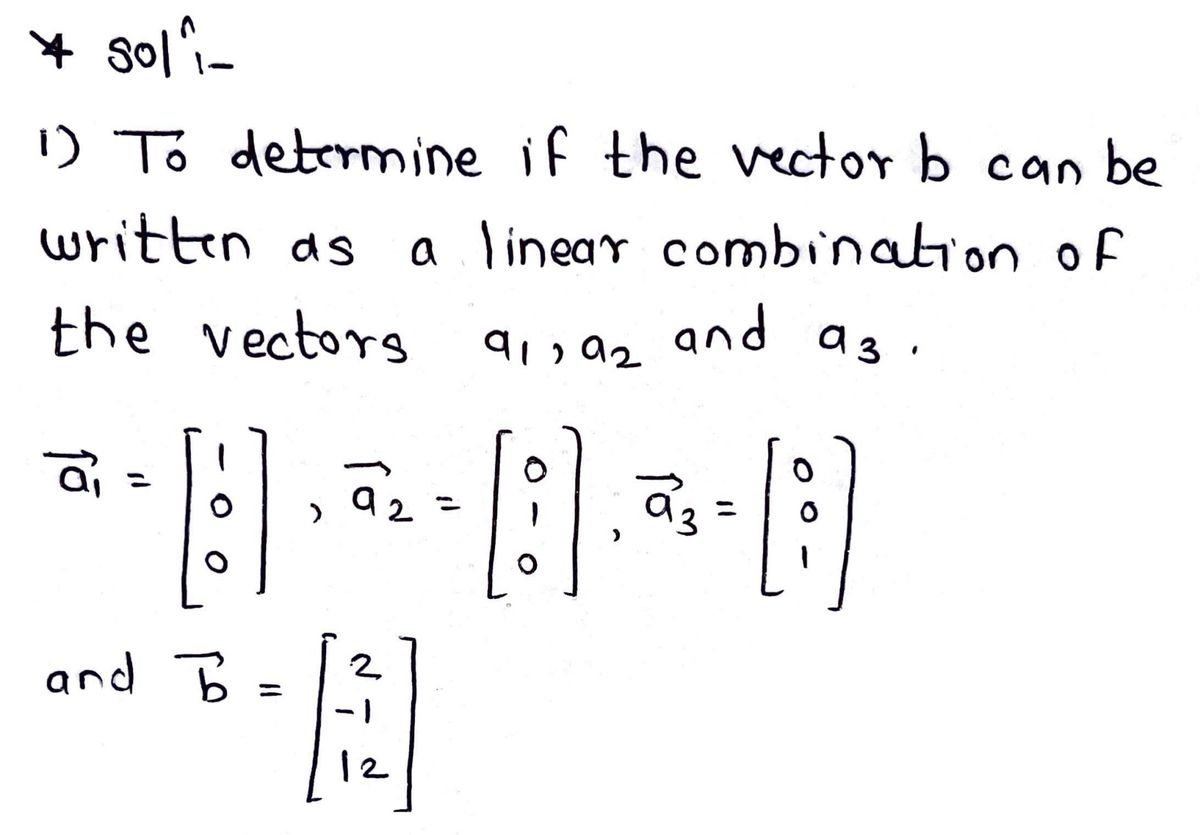 * solⁿ:-
1) To determine if the vector b can be
written as a linear combination of
the vectors a₁, a₂ and a₃.
a⃗₁ = [1 0 0], a⃗₂ = [0 1 0], a⃗₃ = [0 0 1]
and b⃗ = [2 -1 12]